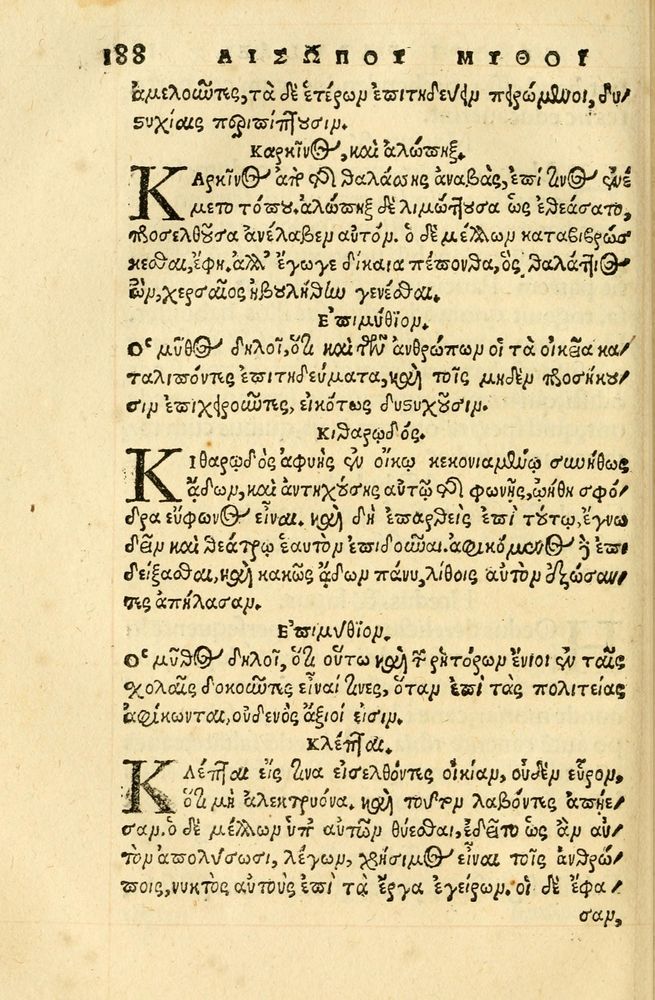 188 ΑΙΣΩΠΟΥ ΜΥΘΟΙ
ἀμελοῦντες, τὰ δὲ ἑτέρων ἐπιτηδεύειν πειρώμενοι, δυ-
στυχίαις περιπίπτουσιν.
Καρκῖνος, καὶ ἀλώπηξ.
ΚΑρκῖνος ἀπὸ τῆς θαλάσσης ἀναβὰς, ἐπί τινος ἐνέ
μετο τόπου. ἀλώπηξ δὲ λιμώττουσα ὡς ἐθεάσατο,
προσελθοῦσα ἀνέλαβεν αὐτόν. ὁ δὲ μέλλων καταβιβρώσ
κεσθαι, ἔφη. ἀλλ' ἔγωγε δίκαια πέπονθα, ὃς θαλάττιος
ὢν, χερσαῖος ἠβουλήθην γενέσθαι.
Ἐπιμύθιον.
Ὁ μῦθος δηλοῖ, ὅτι καὶ τῶν ἀνθρώπων οἱ τὰ οἰκεῖα κα-
ταλιπόντες ἐπιτηδεύματα, καὶ τοῖς μηδὲν προσήκου-
σιν ἐπιχειροῦντες, εἰκότως δυστυχοῦσιν.
Κιθαρῳδός.
ΚΙθαρῳδὸς ἀφυὴς ἐν οἴκῳ κεκονιαμένῳ συνήθως
ᾄδων, καὶ ἀντηχούσης αὐτῷ τῆς φωνῆς, ᾠήθη σφό-
δρα εὔφωνος εἶναι. καὶ δὴ ἐπαρθεὶς ἐπὶ τούτῳ, ἔγνω
δεῖν καὶ θεάτρῳ ἑαυτὸν ἐπιδοῦναι. ἀφικόμενος δ' ἐπι
δείξασθαι, καὶ κακῶς ᾄδων πάνυ, λίθοις αὐτὸν ἐξώσαν-
τες ἀπήλασαν.
Ἐπιμύθιον.
Ὁ μῦθος δηλοῖ, ὅτι οὕτω καὶ τῶν ῥητόρων ἔνιοι ἐν ταῖς
σχολαῖς δοκοῦντες εἶναί τινες, ὅταν ἐπὶ τὰς πολιτείας
ἀφίκωνται, οὐδενὸς ἄξιοί εἰσιν.
Κλέπται.
ΚΛέπται εἴς τινα εἰσελθόντες οἰκίαν, οὐδὲν εὗρον,
ὅτι μὴ ἀλεκτρυόνα. καὶ τοῦτον λαβόντες ἀπῄε-
σαν. ὁ δὲ μέλλων ὑπ' αὐτῶν θύεσθαι, ἐδεῖτο ὡς ἂν αὐ-
τὸν ἀπολύσωσι, λέγων, χρήσιμος εἶναι τοῖς ἀνθρώ-
ποις, νυκτὸς αὐτοὺς ἐπὶ τὰ ἔργα ἐγείρων. οἱ δὲ ἔφα-
σαν,